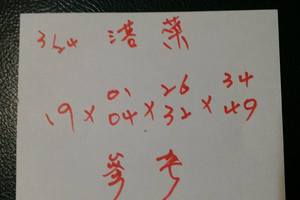 324 港葉
01 26 34
19 × 04 × 32 × 49
參考